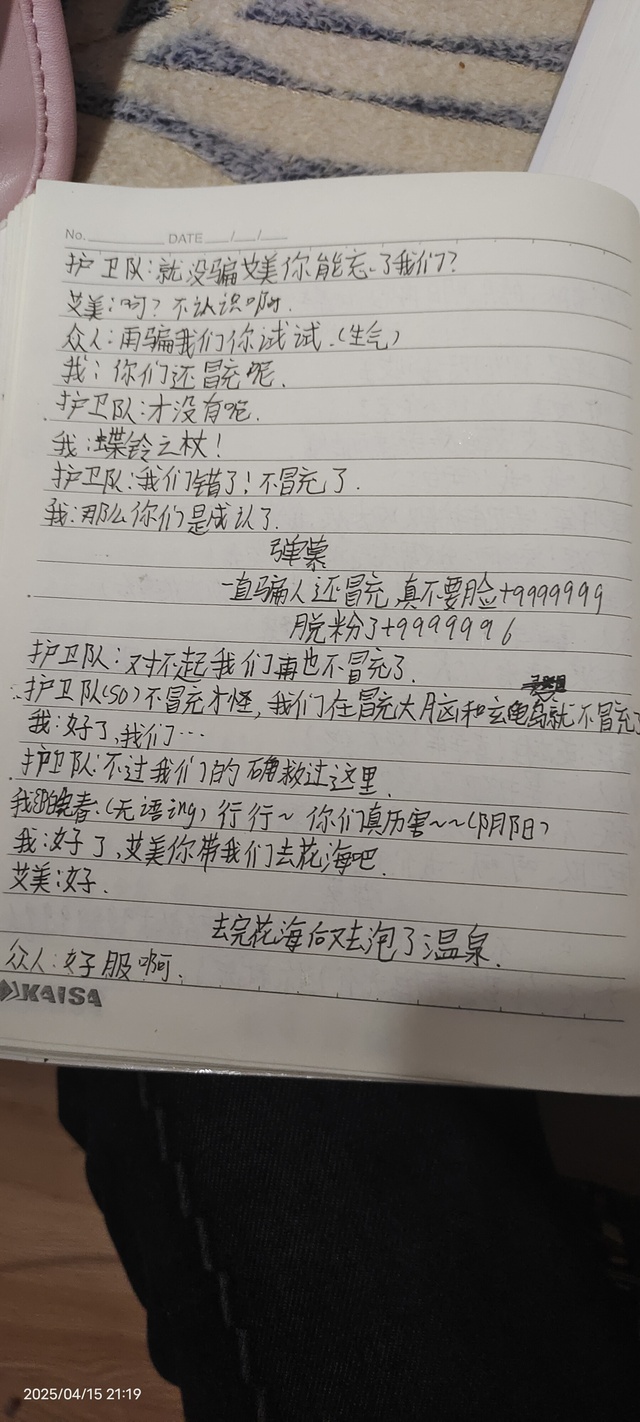 No. DATE / /
护卫队:就没骗艾美你能忘了我们?
艾美:啊?不认识啊.
众人:再骗我们你试试.(生气)
我:你们还冒充呢.
护卫队:才没有呢.
我:蝶铃之杖!
护卫队:我们错了!不冒充了.
我:那么你们是成认了.
弹幕
一直骗人还冒充,真不要脸+9999999
脱粉了+9999996
护卫队:对不起我们再也不冒充了.
护卫队(SO)不冒充才怪,我们在冒充大月凶和玄龟岛就不冒充了
我:好了,我们…
护卫队:不过我们的确救过这里.
我 晓春:(无语ing)行行~你们真历害~~(阴阳)
我:好了,艾美你带我们去花海吧.
艾美:好.
去完花海后又去泡了温泉.
众人:好服啊.
KAISA
2025/04/15 21:19